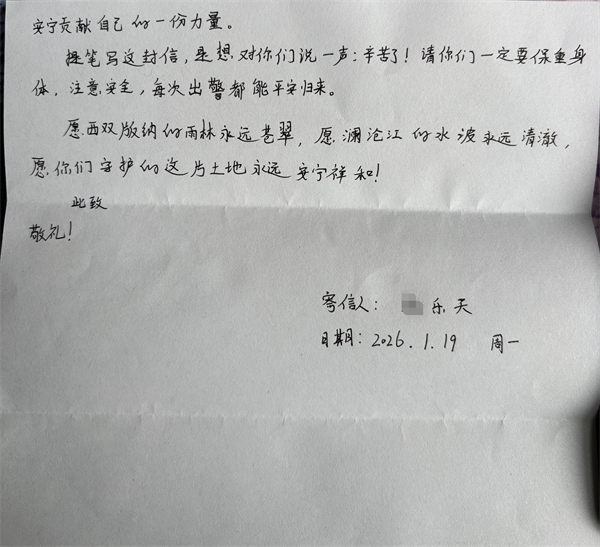 安宁贡献自己的一份力量。
提笔写这封信，是想对你们说一声：辛苦了！请你们一定要保重身
体，注意安全，每次出警都能平安归来。
愿西双版纳的雨林永远苍翠，愿澜沧江的水波永远清澈，
愿你们守护的这片土地永远安宁祥和！
此致
敬礼！
寄信人：乐天
日期：2026.1.19 周一